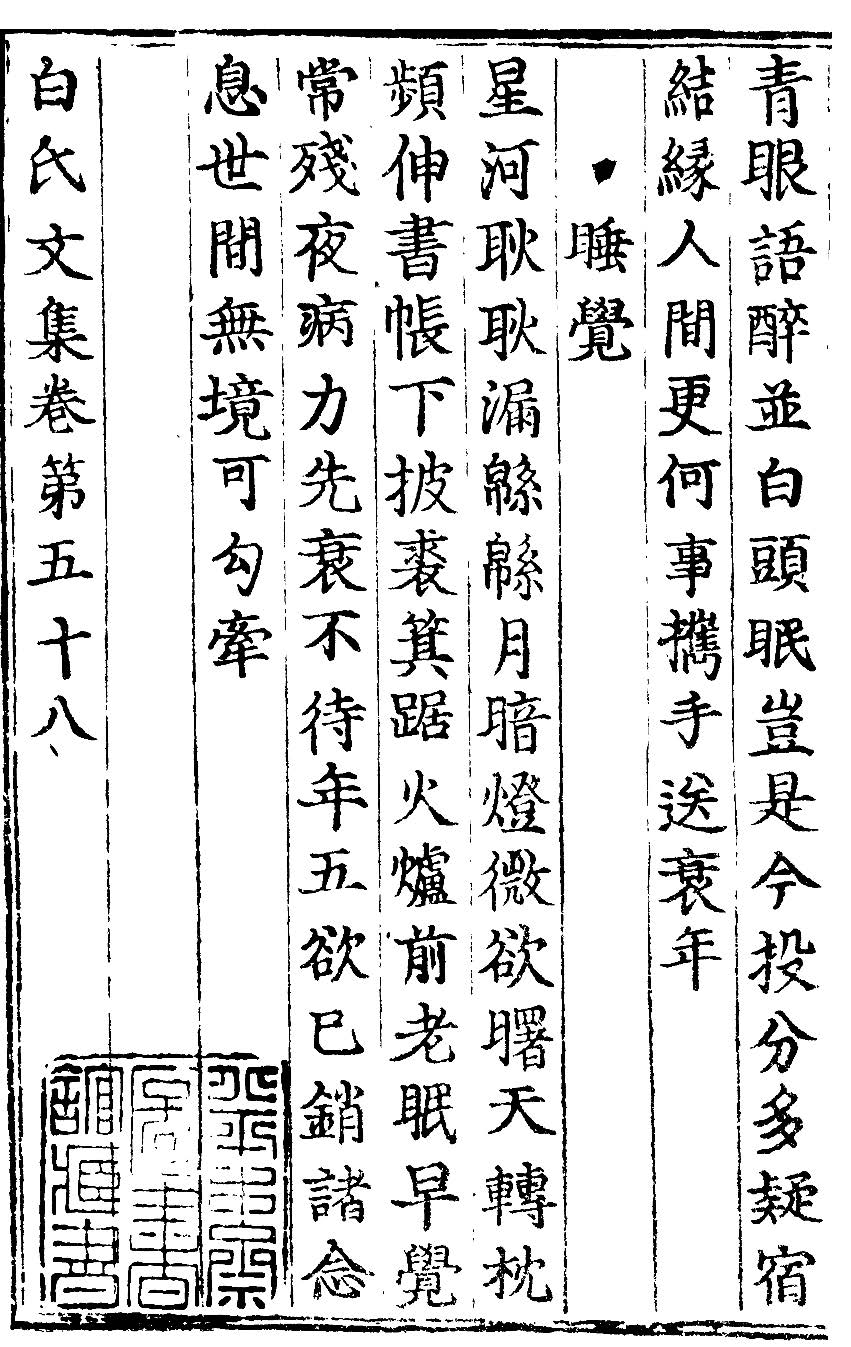 青眼語醉並白頭眠豈是今投分多疑宿
結緣人間更何事攜手送衰年
睡覺
星河耿耿漏緜緜月暗燈微欲曙天轉枕
頻伸書帳下披裘箕踞火爐前老眠早覺
常殘夜病力先衰不待年五欲已銷諸念
息世間無境可勾牽
白氏文集卷第五十八